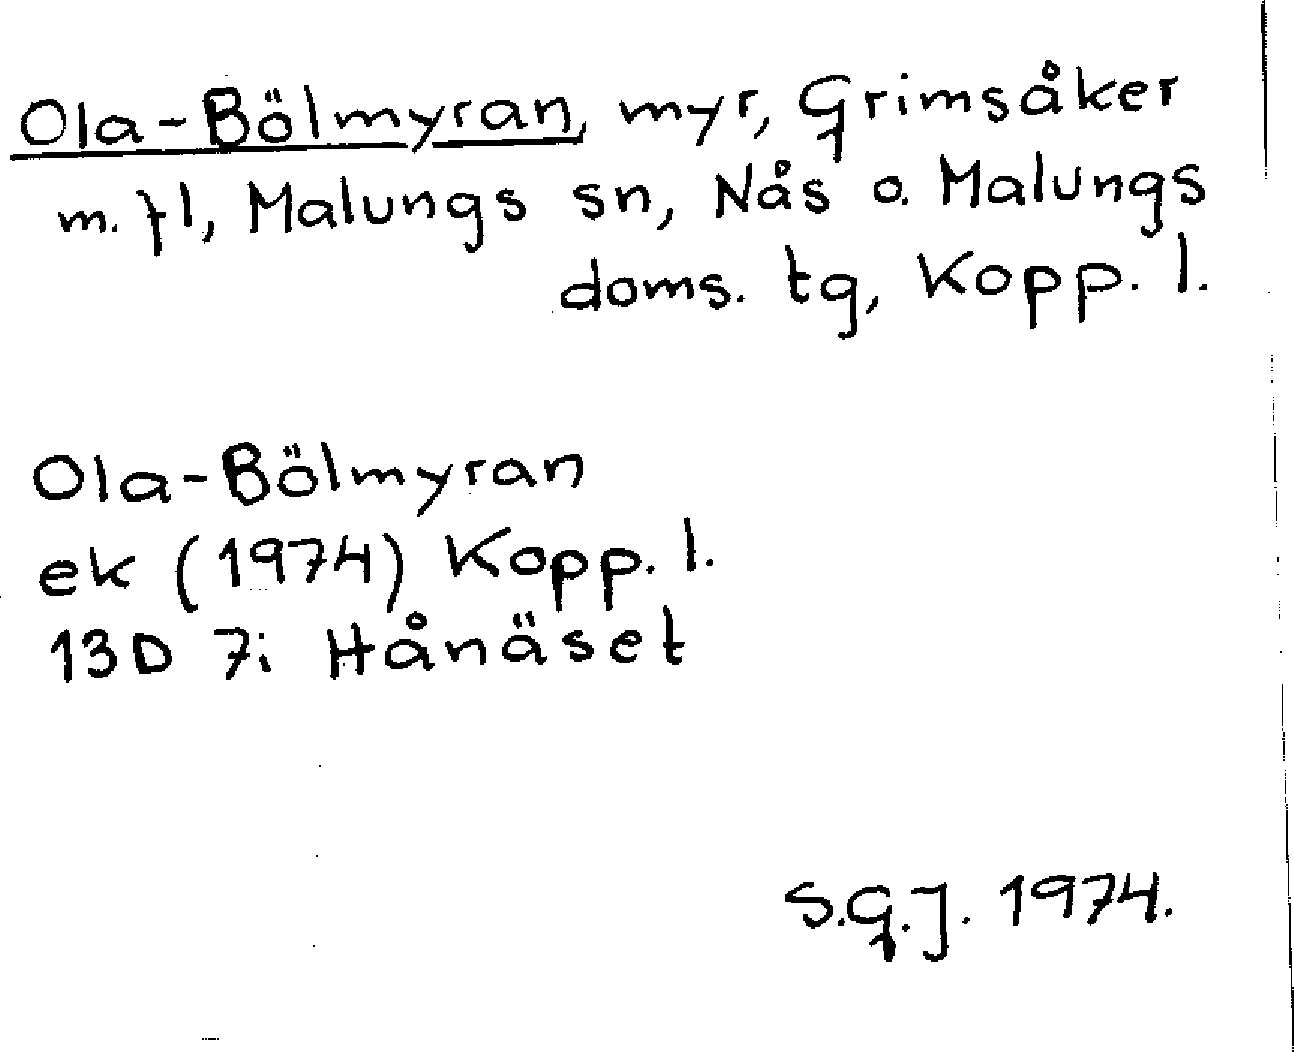 Ola-Bölmyran, myr, Grimsåker
m. fl, Malungs sn, Nås o. Malungs
doms. tg, Kopp. l.
Ola-Bölmyran
ek (1974) Kopp. l.
13D 7i Hånäset
S.G.J. 1974.